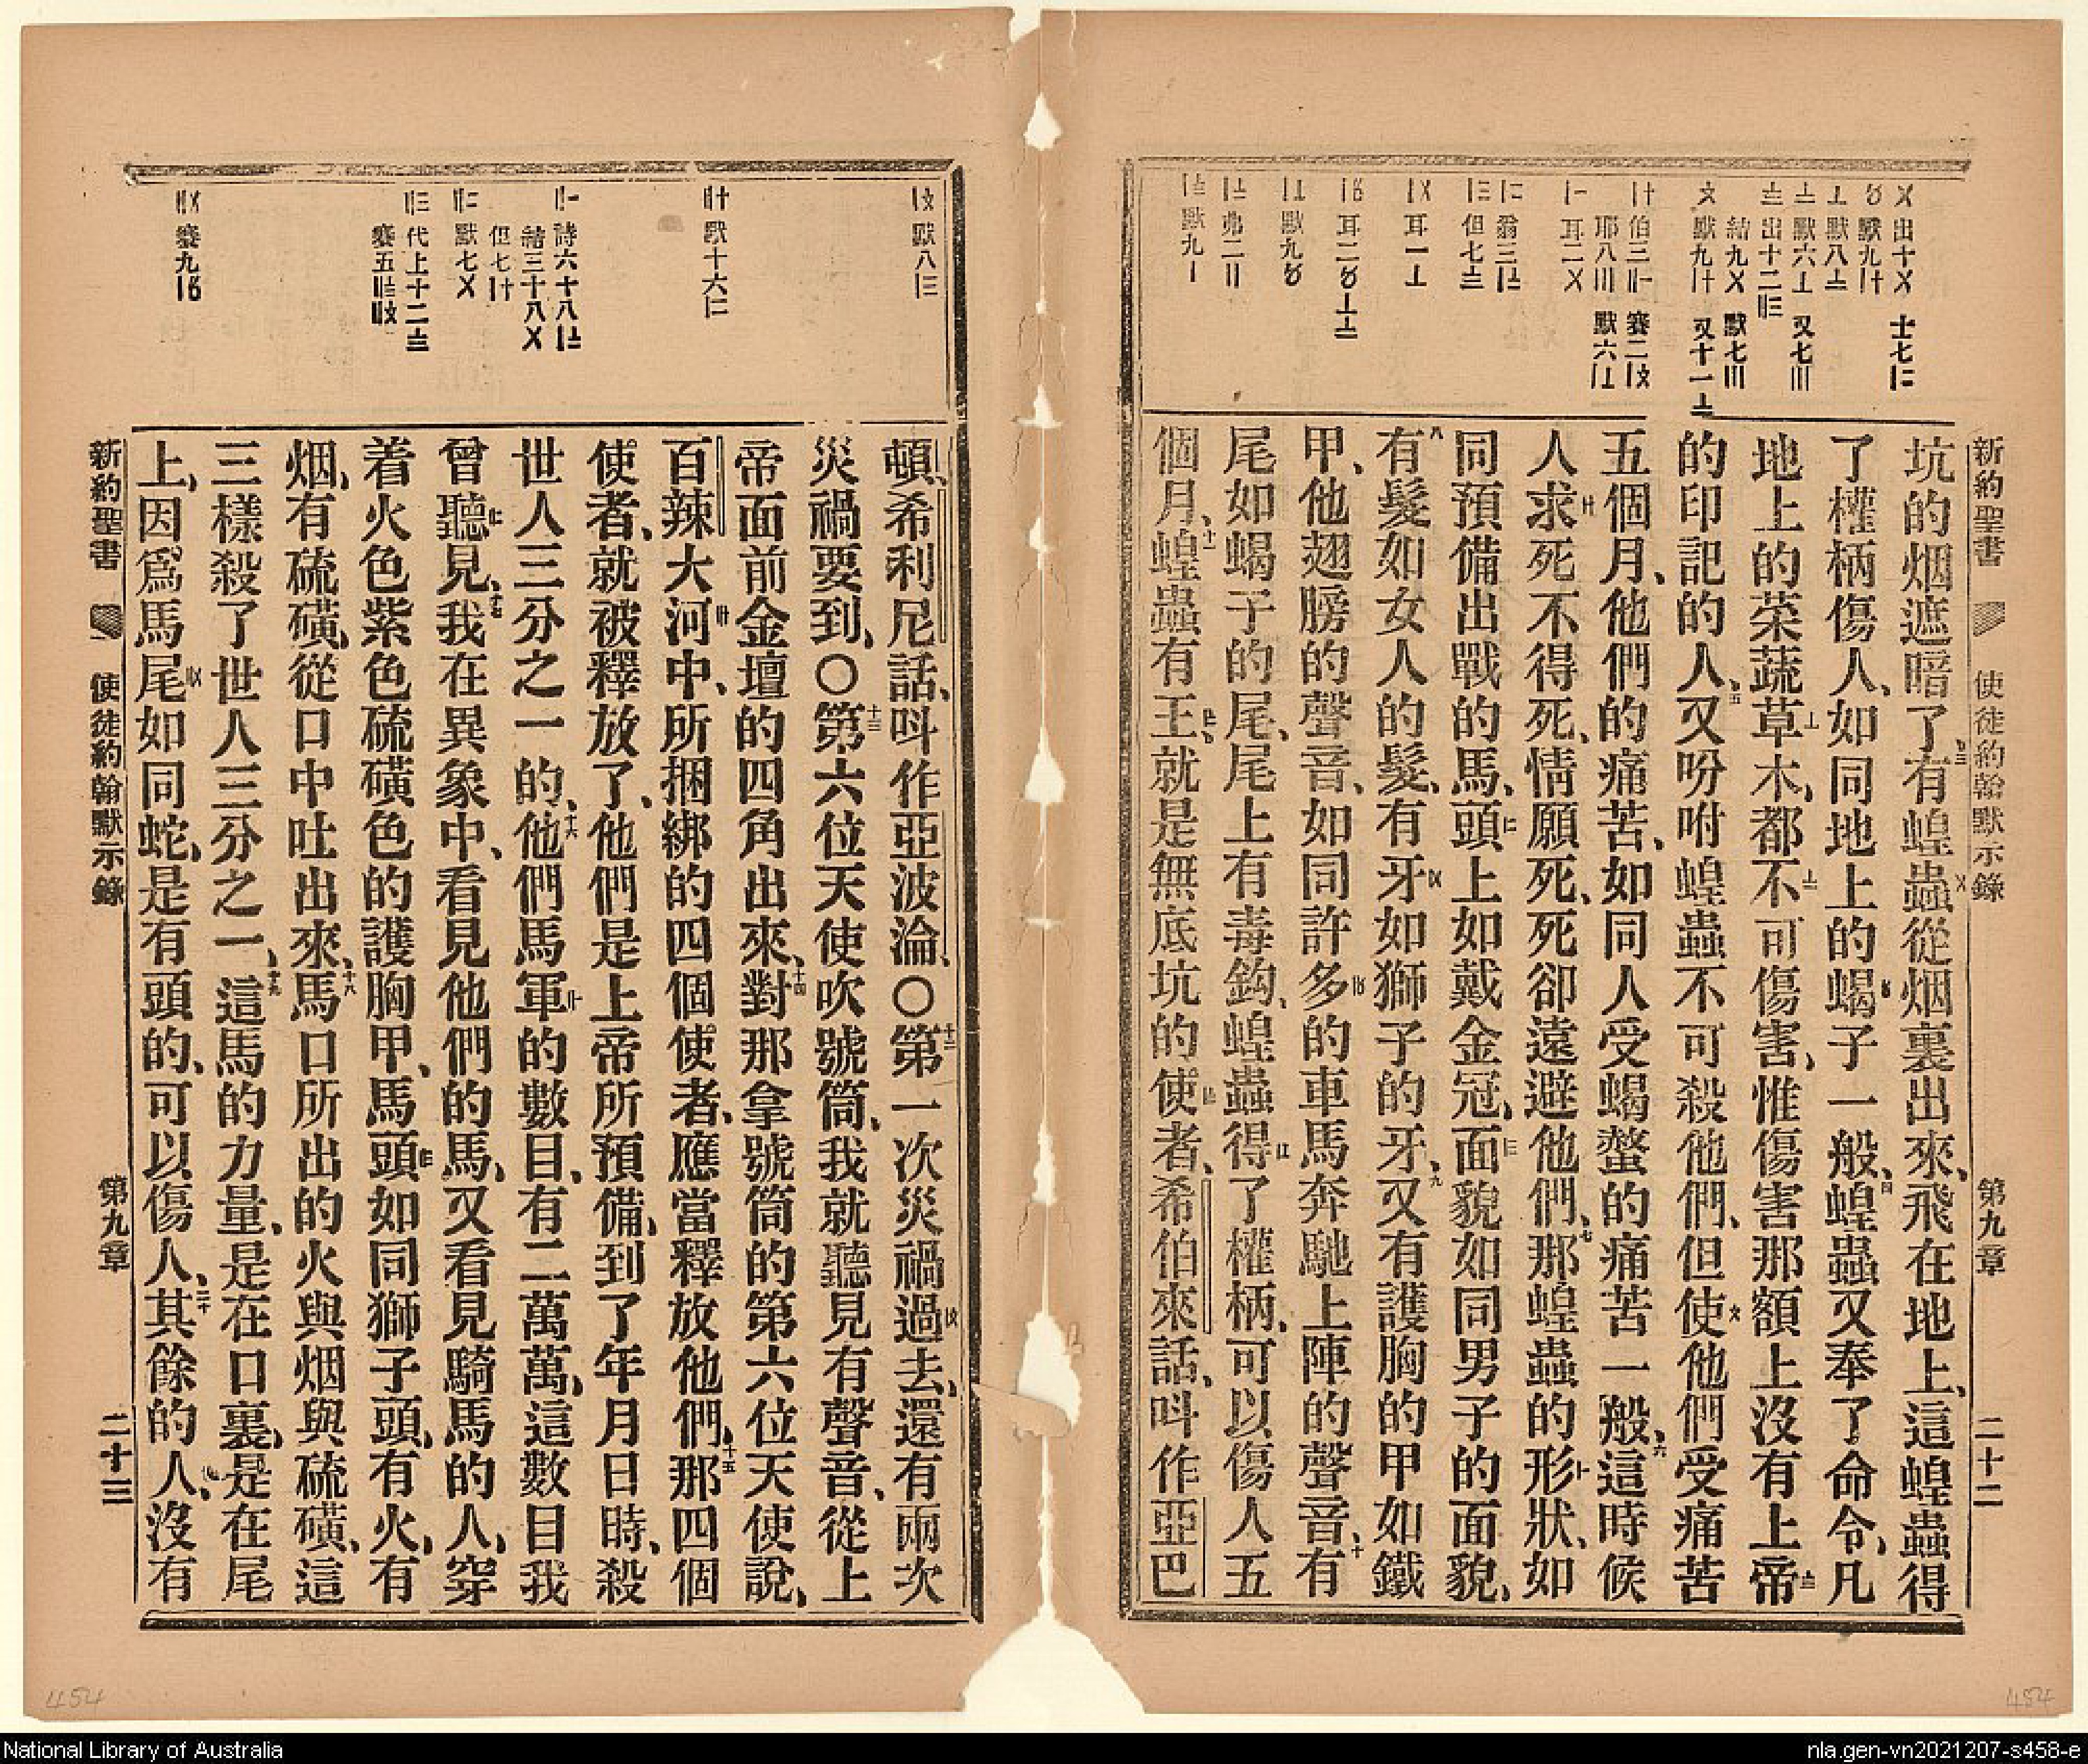 新約聖書 使徒約翰默示錄 第九章 二十二
坑的烟遮暗了三有蝗蟲從烟裏出來、飛在地上、這蝗蟲得
了權柄傷人、如同地上的蝎子一般、四蝗蟲又奉了命令、凡
地上的菜蔬草木、都不可傷害、惟傷害那額上沒有上帝
的印記的人、五又吩咐蝗蟲不可殺他們、但使他們受痛苦
五個月、他們的痛苦、如同人受蝎螫的痛苦一般、六這時候
人求死不得死、情願死、死卻遠避他們、七那蝗蟲的形狀、如
同預備出戰的馬、頭上如戴金冠、面貌如同男子的面貌、
八有髮如女人的髮、有牙如獅子的牙、九又有護胸的甲如鐵
甲、他翅膀的聲音、如同許多的車馬奔馳上陣的聲音、十有
尾如蝎子的尾、尾上有毒鈎、蝗蟲得了權柄、可以傷人五
個月、十一蝗蟲有王、就是無底坑的使者、希伯來話、呌作亞巴
頓、希利尼話、呌作亞波淪、〇十二第一次災禍過去、還有兩次
災禍要到、〇十三第六位天使吹號筒、我就聽見有聲音、從上
帝面前金壇的四角出來、十四對那拿號筒的第六位天使說、
百辣大河中、所捆綁的四個使者、應當釋放他們、十五那四個
使者、就被釋放了、他們是上帝所預備、到了年月日時、殺
世人三分之一的、十六他們馬軍的數目、有二萬萬、這數目我
曾聽見、十七我在異象中、看見他們的馬、又看見騎馬的人、穿
着火色紫色硫磺色的護胸甲、馬頭如同獅子頭、有火、有
烟、有硫磺、從口中吐出來、十八馬口所出的火與烟與硫磺、這
三樣殺了世人三分之一、十九這馬的力量、是在口裏、是在尾
上、因爲馬尾如同蛇、是有頭的、可以傷人、二十其餘的人、沒有
新約聖書 使徒約翰默示錄 第九章 二十三
454
454
National Library of Australia
nla.gen-vn2021207-s458-e